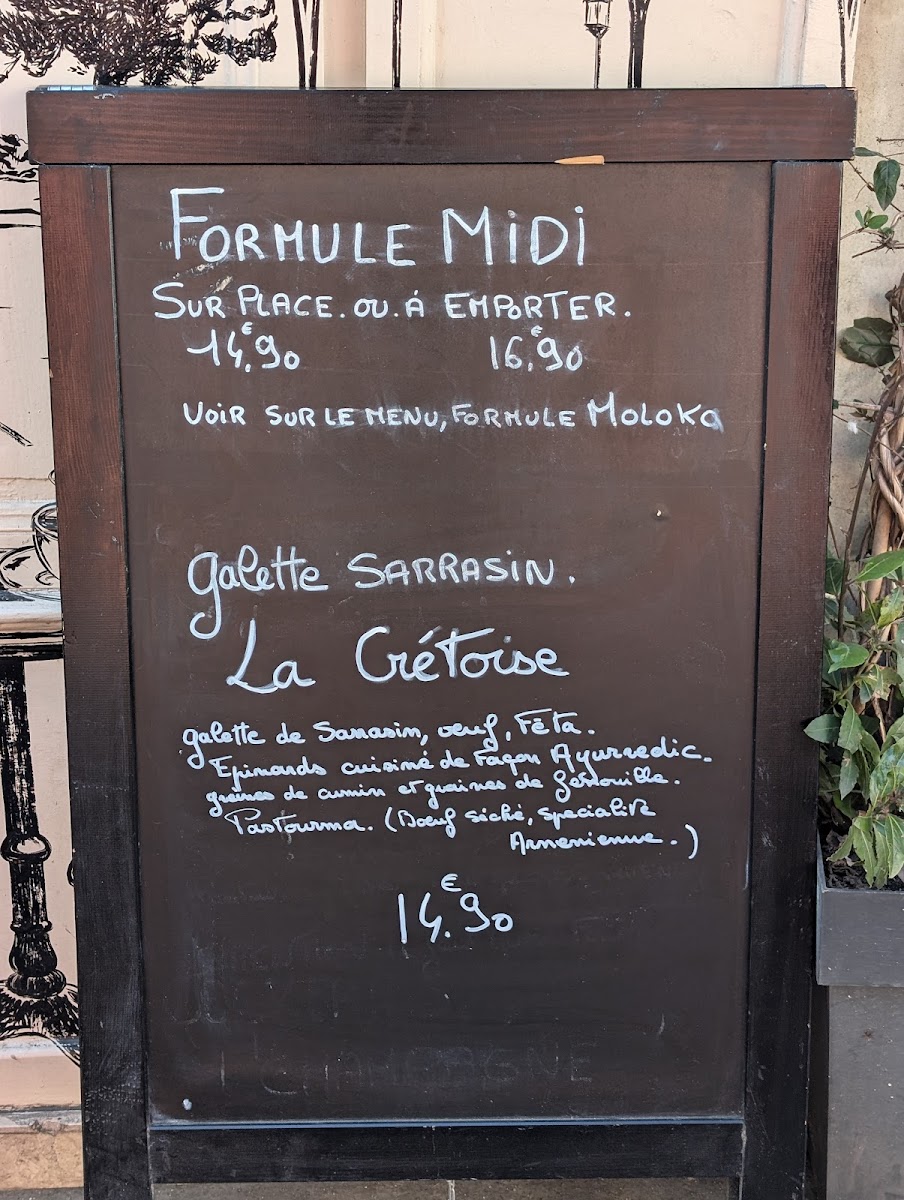 FORMULE MiDi
SUR PLACE. OU. À EMPORTER.
14,€90 16,€90
VOIR SUR LE MENU, FORMULE MOLOKO
galette SARRASiN.
La Crétoise
galette de Sarrasin, oeuf, Fêta.
Epinards cuisiné de Façon Ayurvedic.
graines de cumin et graines de Fenouille.
Pastourma. (Bœuf séché, spécialité
Arménienne.)
14,€90
CHAMPAGNE